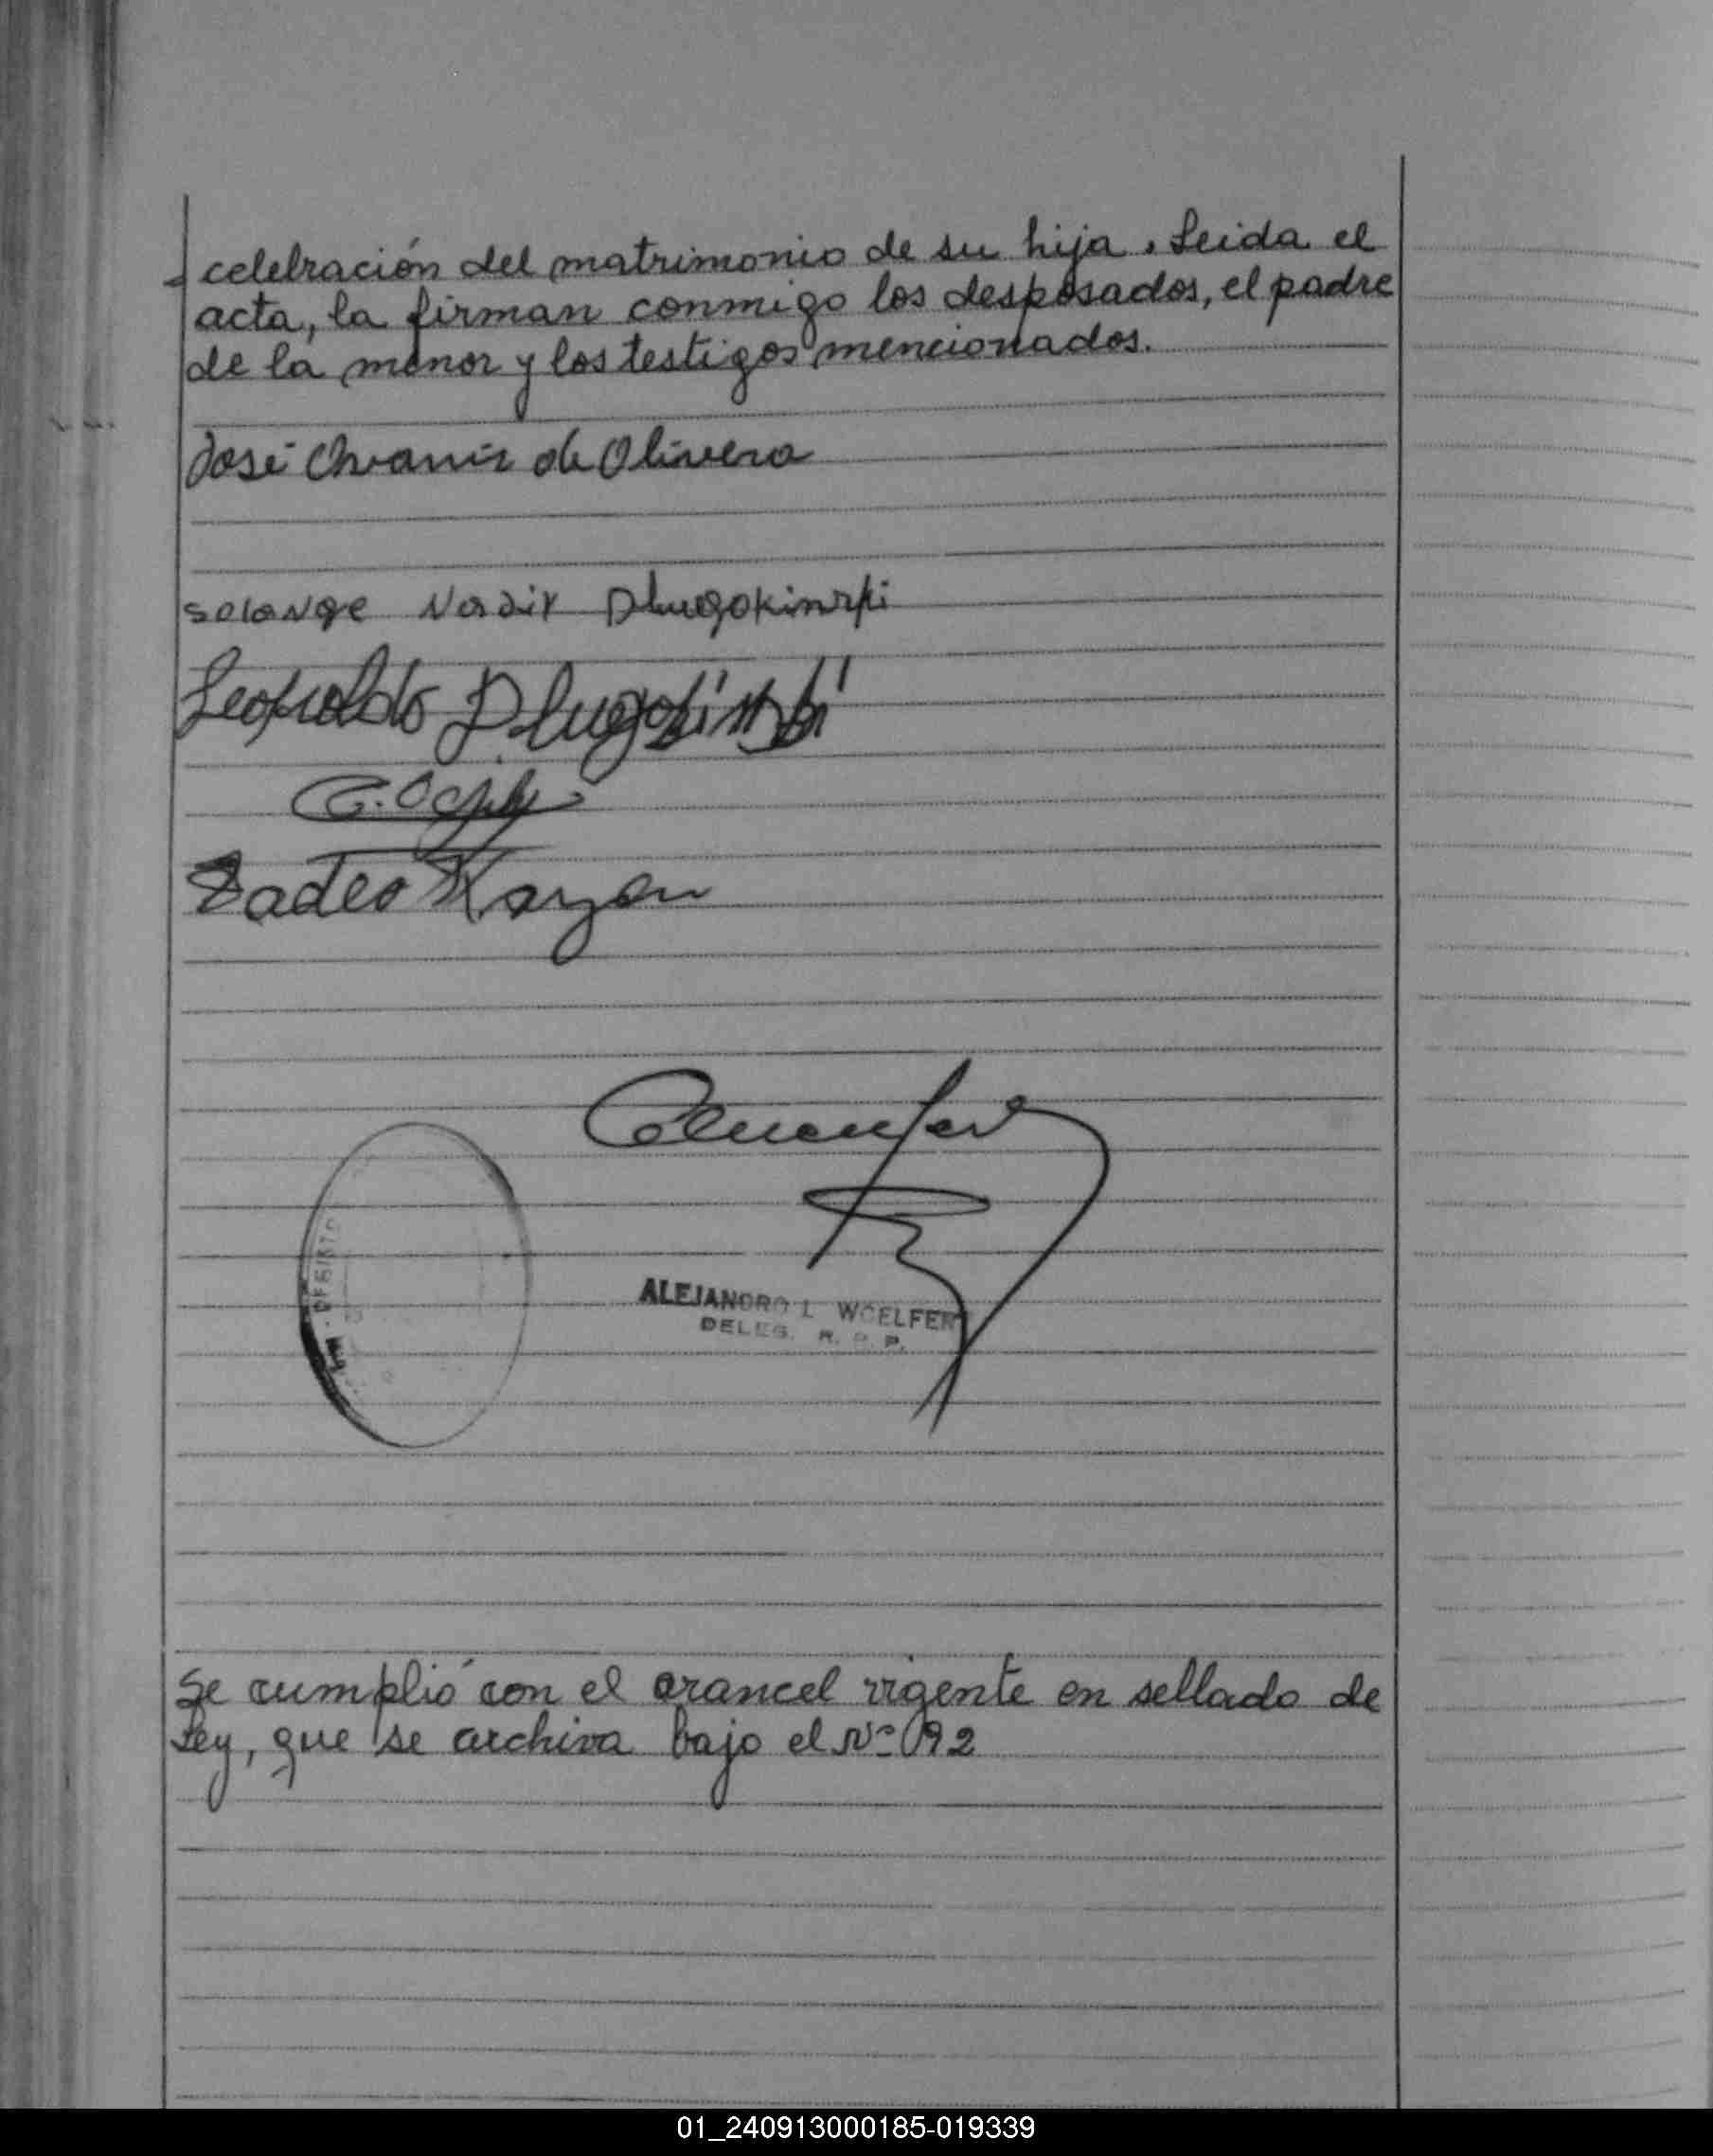 celebración del matrimonio de su hija. Leida el
acta, la firman conmigo los desposados, el padre
de la menor y los testigos mencionados.
José de Olivera
Solange Dlugokinski
Leopoldo Dlugokinski
Tadeo
ALEJANDRO L WOELFERT
DELEG. R. P.
Se cumplió con el arancel vigente en sellado de
Ley, que se archiva bajo el Nº 092
01_240913000185-019339